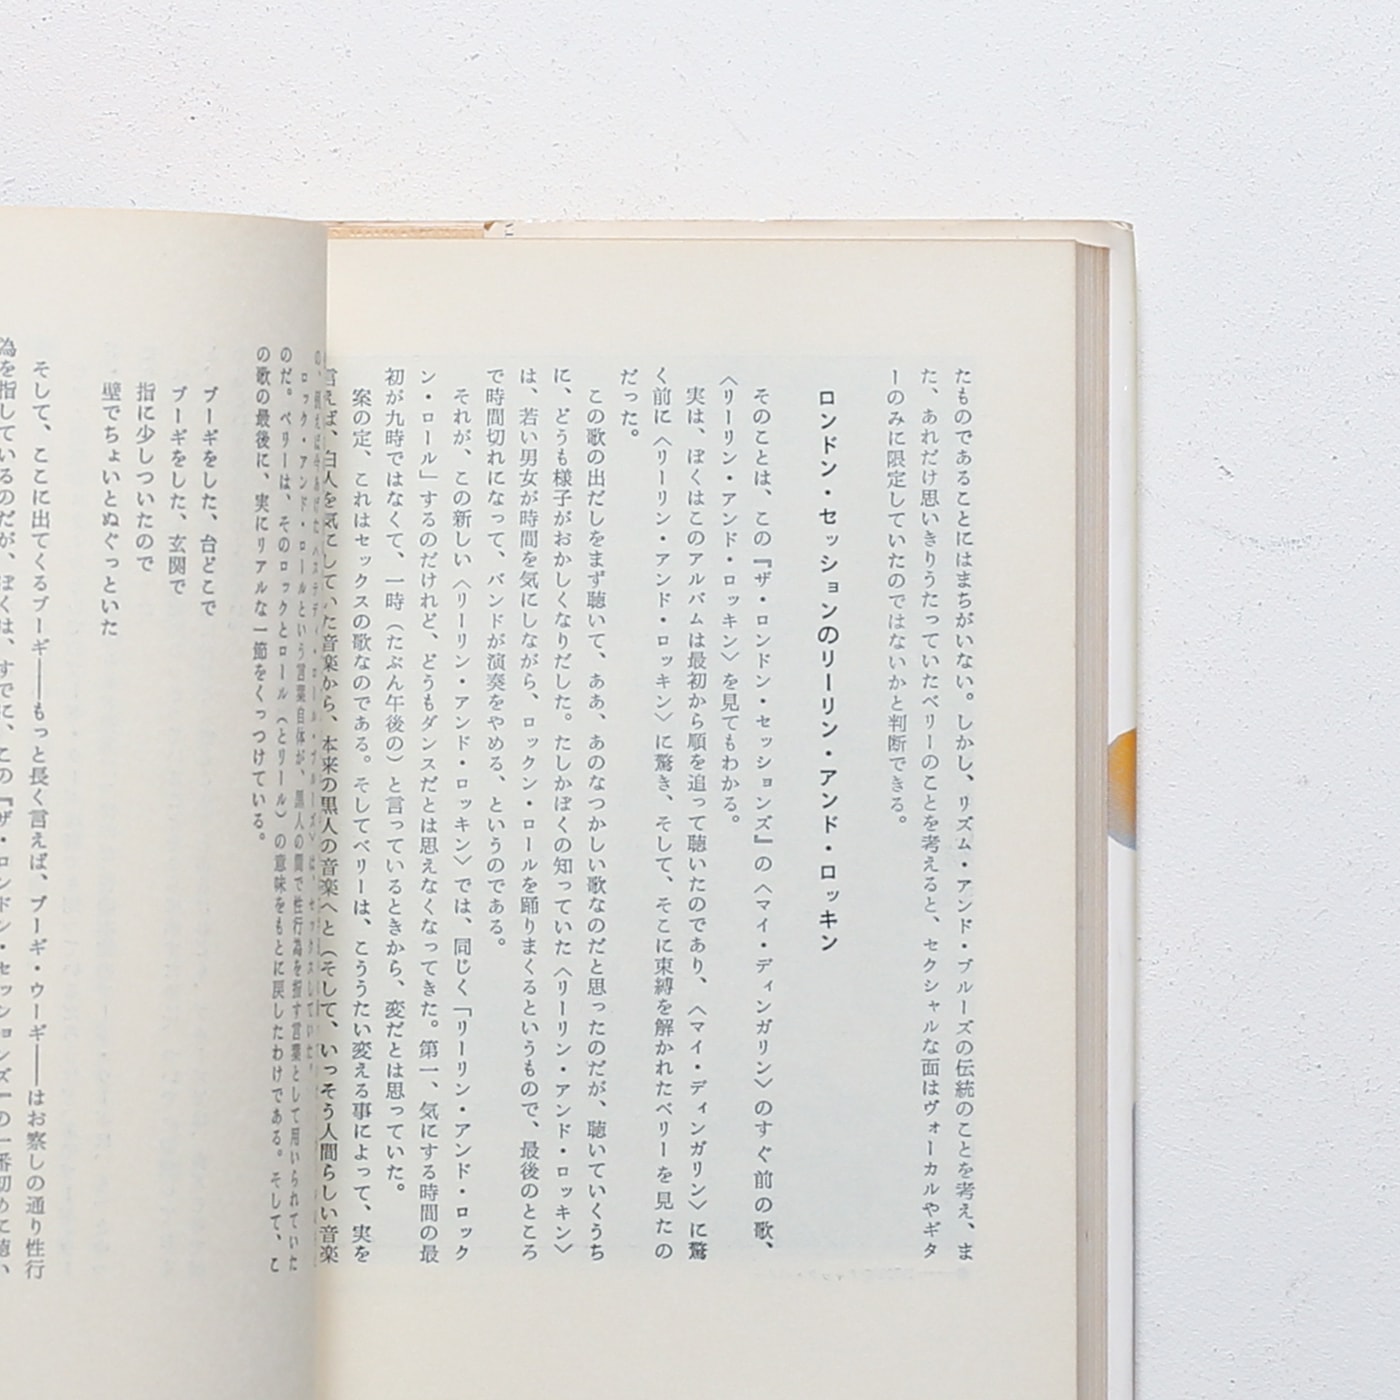 たものであることにはまちがいない。しかし、リズム・アンド・ブルーズの伝統のことを考え、ま
た、あれだけ思いきりうたっていたベリーのことを考えると、セクシャルな面はヴォーカルやギタ
ーのみに限定していたのではないかと判断できる。
ロンドン・セッションのリーリン・アンド・ロッキン
そのことは、この『ザ・ロンドン・セッションズ』の〈マイ・ディンガリン〉のすぐ前の歌、
〈リーリン・アンド・ロッキン〉を見てもわかる。
実は、ぼくはこのアルバムは最初から順を追って聴いたのであり、〈マイ・ディンガリン〉に驚
く前に〈リーリン・アンド・ロッキン〉に驚き、そして、そこに束縛を解かれたベリーを見たの
だった。
この歌の出だしをまず聴いて、ああ、あのなつかしい歌なのだと思ったのだが、聴いていくうち
に、どうも様子がおかしくなりだした。たしかぼくの知っていた〈リーリン・アンド・ロッキン〉
は、若い男女が時間を気にしながら、ロックン・ロールを踊りまくるというもので、最後のところ
で時間切れになって、バンドが演奏をやめる、というのである。
それが、この新しい〈リーリン・アンド・ロッキン〉では、同じく「リーリン・アンド・ロック
ン・ロール」するのだけれど、どうもダンスだとは思えなくなってきた。第一、気にする時間の最
初が九時ではなくて、一時（たぶん午後の）と言っているときから、変だとは思っていた。
案の定、これはセックスの歌なのである。そしてベリーは、こううたい変える事によって、実を
言えば、白人を気にしていた音楽から、本来の黒人の音楽へと（そして、いっそう人間らしい音楽
ロック・アンド・ロールという言葉自体が、黒人の間で性行為を指す言葉として用いられていた
のだ。ベリーは、そのロックとロール（とリール）の意味をもとに戻したわけである。そして、こ
の歌の最後に、実にリアルな一節をくっつけている。
ブーギをした、台どこで
ブーギをした、玄関で
指に少しついたので
壁でちょいとぬぐっといた
そして、ここに出てくるブーギ――もっと長く言えば、ブーギ・ウーギ――はお察しの通り性行
為を指しているのだが、ぼくは、すでに、この『ザ・ロンドン・セッションズ』の一番初めに聴い